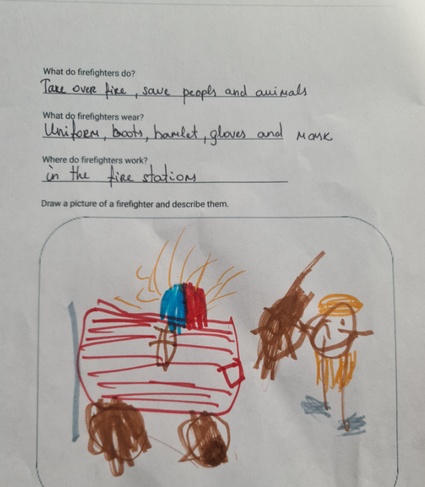 What do firefighters do?
Take over fire, save peopls and animals
What do firefighters wear?
Uniform, boots, hamlet, gloves and mask
Where do firefighters work?
in the fire stations
Draw a picture of a firefighter and describe them.